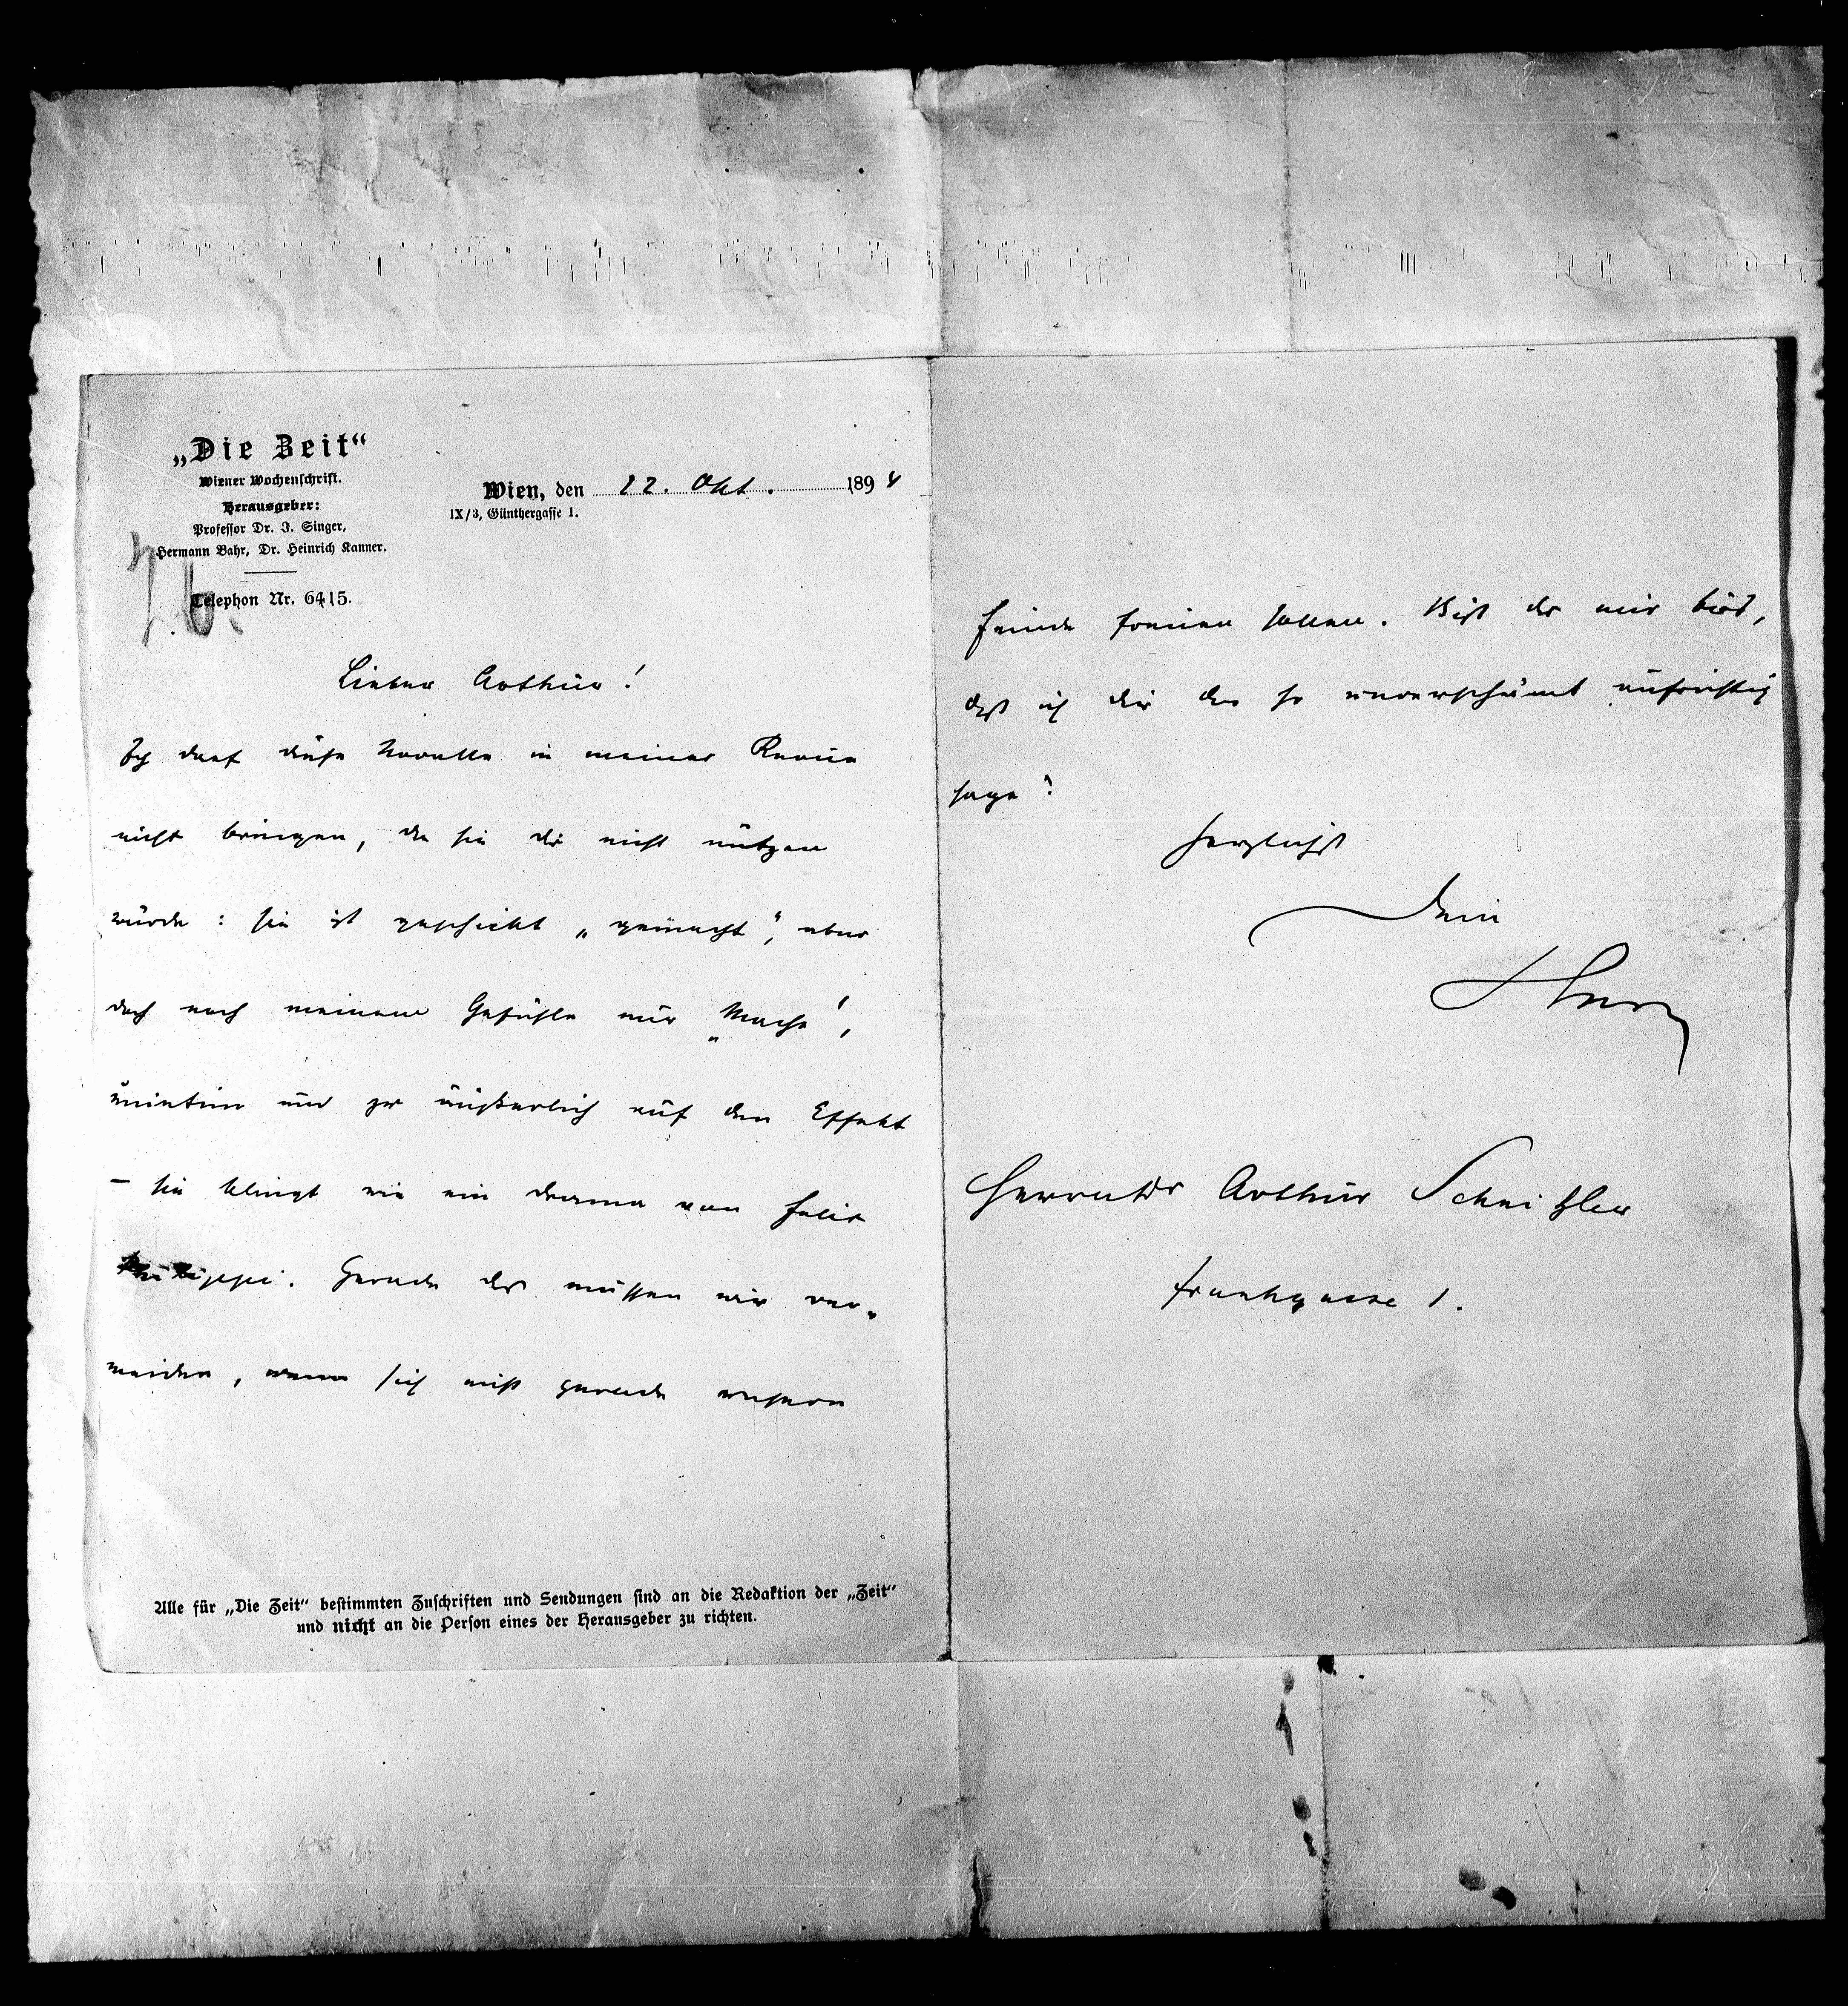 „Die Zeit“
Wiener Wochenschrift.
Herausgeber:
Professor Dr. I. Singer,
Hermann Bahr, Dr. Heinrich Kanner.
Telephon Nr. 6415.
Wien, den 12. Okt. 1894
IX/3, Günthergasse 1.
Lieber Arthur!
Ich darf diese Novelle in meiner Revue
nicht bringen, da sie dir nicht nützen
würde: sie ist geschickt „gemacht“, aber
doch nach meinem Gefühle nur „Mache“,
unintim und zu äußerlich auf den Effekt
– sie klingt wie ein Drama von Felix
Philippi. Gerade das müssen wir ver-
meiden, wenn sich nicht gerade unsere
Feinde freuen sollen. Bist du mir bös,
daß ich dir das so unverschämt aufrichtig
sage?
Herzlichst
Dein
Herm
Herrn Dr Arthur Schnitzler
Frankgasse 1.
Alle für „Die Zeit“ bestimmten Zuschriften und Sendungen sind an die Redaktion der „Zeit“
und nicht an die Person eines der Herausgeber zu richten.